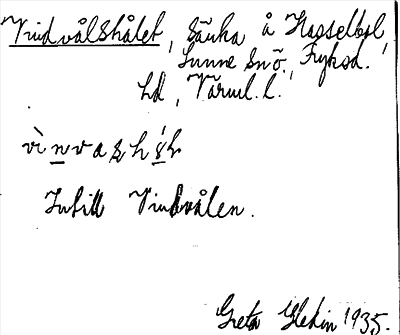 Vindvålshålet, sänka å Hasselbol,
Sunne sn ö., Fryksd.
hd, Värml. l.
Intill Vindvålen.
Greta Hedin 1935.